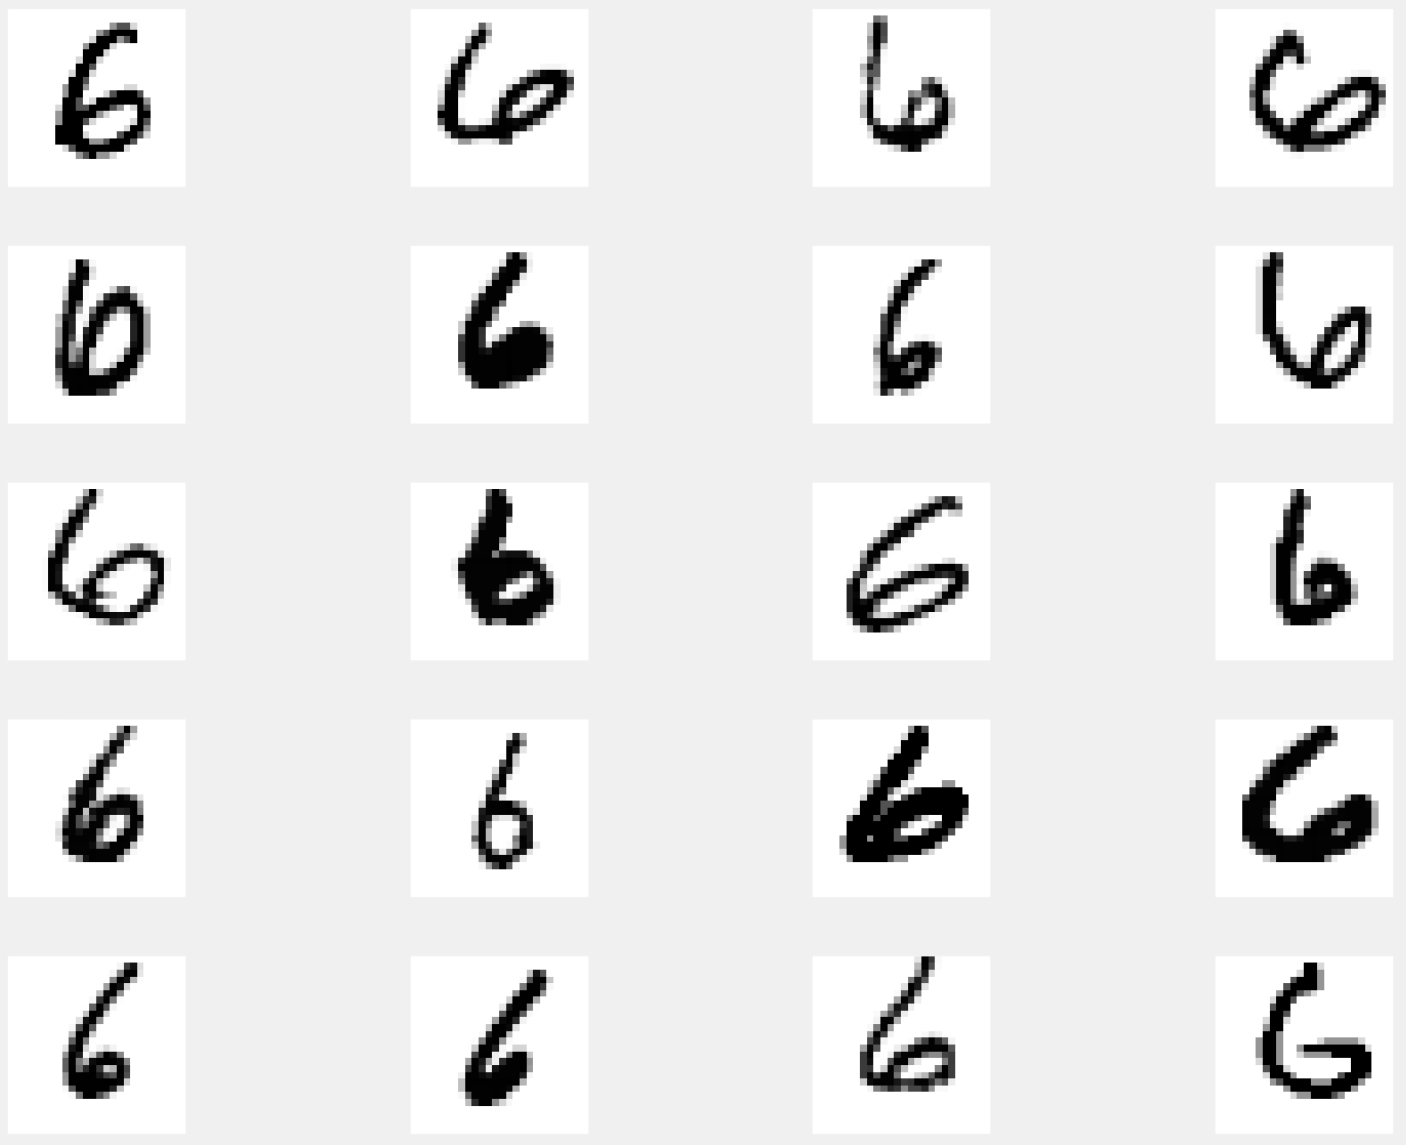 6 6 6 6
6 6 6 6
6 6 6 6
6 6 6 6
6 6 6 6